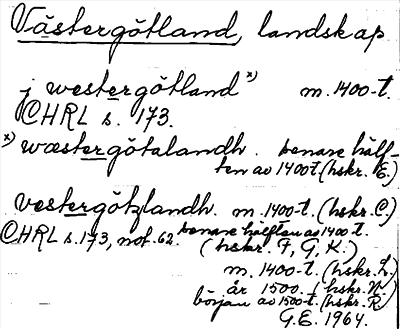 Västergötland, landskap
j westergötland x) m. 1400-t.
CHRL s. 173.
x) wæstergötalandh. senare hälf-
ten av 1400t. (hskr. E.)
vestergötzlandh. m. 1400-t. (hskr. C.)
CHRL s. 173, not. 62. senare hälften av 1400t.
(hskr. F, G, K.)
m. 1400-t. (hskr. L.)
år 1500. (hskr. N.)
början av 1500-t. (hskr. R.)
G.E. 1964.